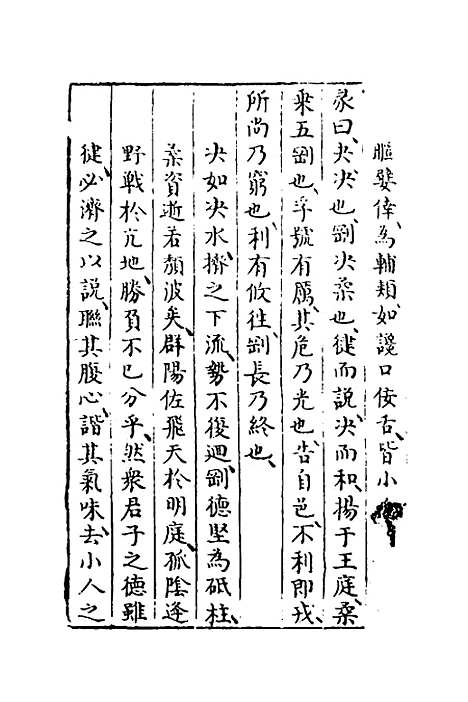 軀嬖倖、為輔頰、如讒口佞舌、皆小
彖曰、夬決也、剛決柔也、健而說、決而和、揚于王庭、柔
乗五剛也、孚號有厲、其危乃光也、告自邑、不利即戎、
所尚乃窮也、利有攸往、剛長乃終也、
決如決水、擠之下流、勢不復迴、剛德堅為砥柱、
柔資逝若頹波矣、群陽佐飛天於明庭、孤陰逢
野戰於亢地、勝負不已分乎、然衆君子之德雖
健、必濟之以說、聯其腹心、諧其氣味、去小人之